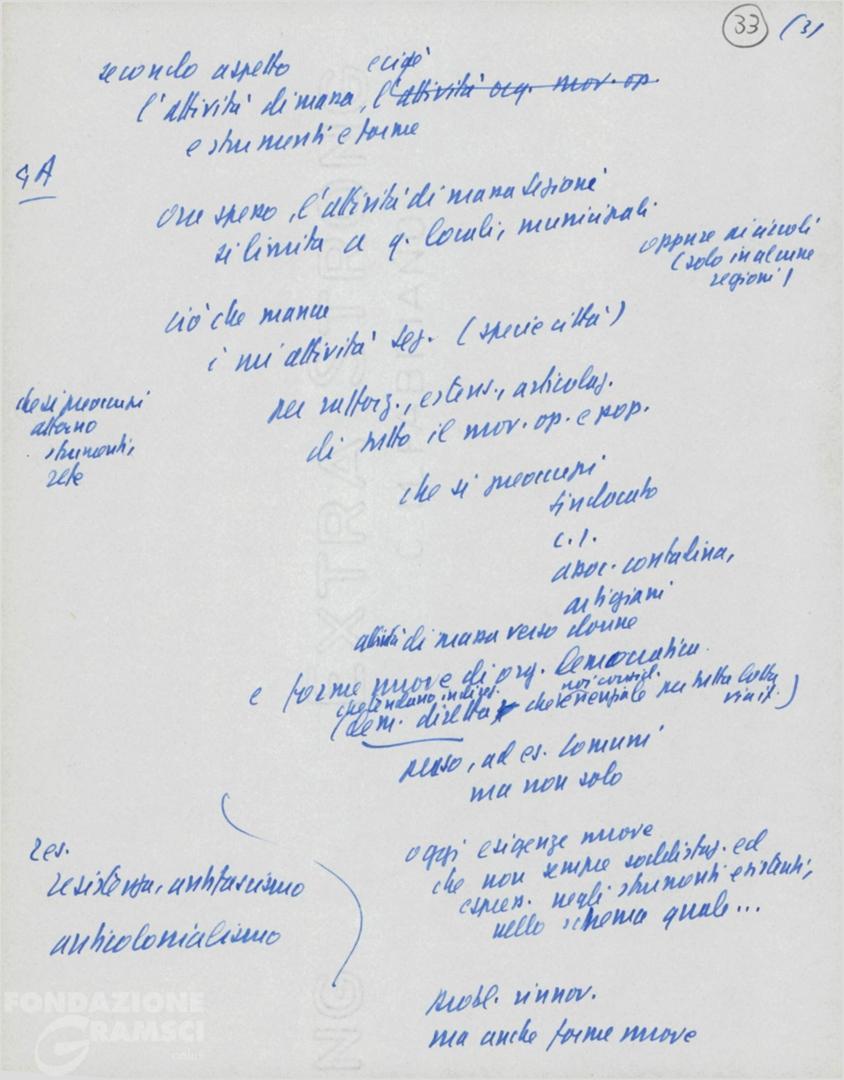 33 (3)
secondo aspetto e cioè
l'attività di massa, l'attività org. mov. op.
e strumenti e forme
4A
ora spesso, l'attività di massa sezioni
si limita a q. locali, municipali
oppure ai circoli
(solo in alcune
regioni)
ciò che manca
è un'attività sez. (specie città)
per rafforz., estens., articolaz.
di tutto il mov. op. e pop.
che si preoccupi
attorno
strumenti,
rete
che si preoccupi
sindacato
c.i.
assoc. contadina,
artigiani
attività di massa verso donne
e forme nuove di org. democratica
(dem. diretta che essenziale per tutta lotta
noi consid.
penso, ad es. Comuni
ma non solo
oggi esigenze nuove
che non sempre soddisfaz. ed
espress. negli strumenti esistenti,
nello schema quale...
res.
resistenza, antifascismo
anticolonialismo
probl. rinnov.
ma anche forme nuove
EXTRA STRONG
FABRIANO
FONDAZIONE
GRAMSCI
onlus